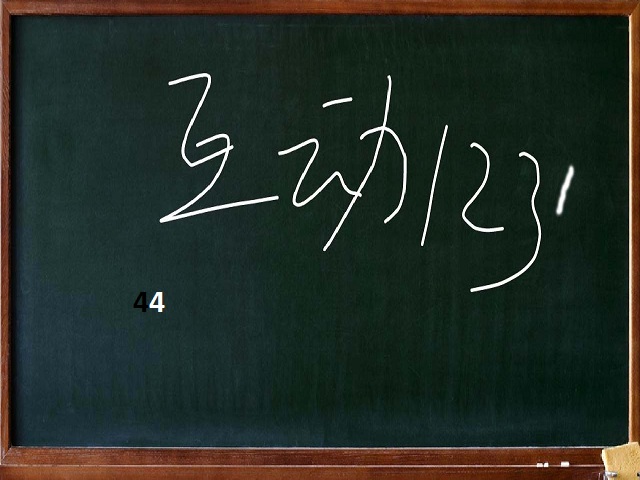 互动123'
44